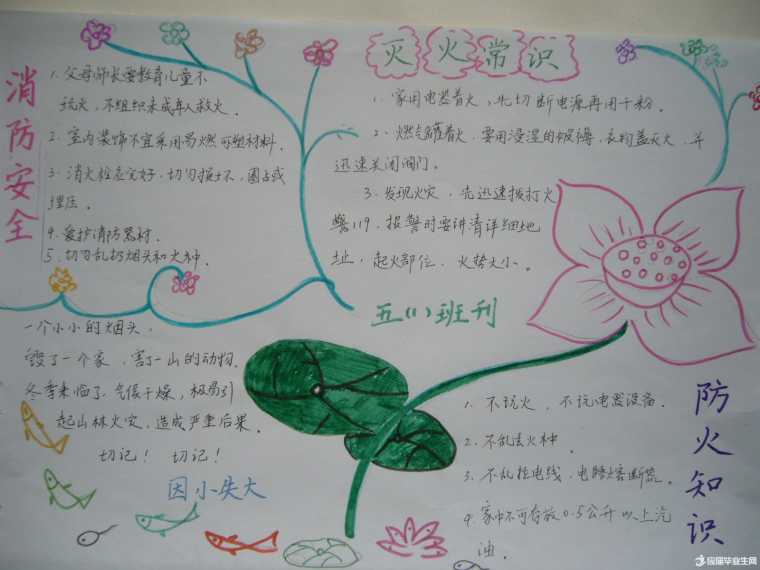 消防安全
1、父母师长要教育儿童不
玩火,不组织未成年人救火。
2、室内装饰不宜采用易燃可塑材料。
3、消火栓应完好,切勿损坏、圈占或
埋压。
4、爱护消防器材。
5、切勿乱扔烟头和火种。
灭火常识
1、家用电器着火,先切断电源再用干粉。
2、燃气罐着火,要用浸湿的被褥、衣物盖灭火,并
迅速关闭阀门。
3、发现火灾,先迅速拨打火
警119,报警时要讲清详细地
址,起火部位、火势大小。
五(1)班刊
一个小小的烟头,
毁了一个家,害了一山的动物。
冬季来临了、气候干燥,极易引
起山林火灾,造成严重后果。
切记! 切记!
因小失大
防火知识
1、不玩火,不玩电器设备。
2、不乱丢火种。
3、不乱拉电线,电路熔断。
4、家中不可存放0.5公升以上汽
油。
应届毕业生网